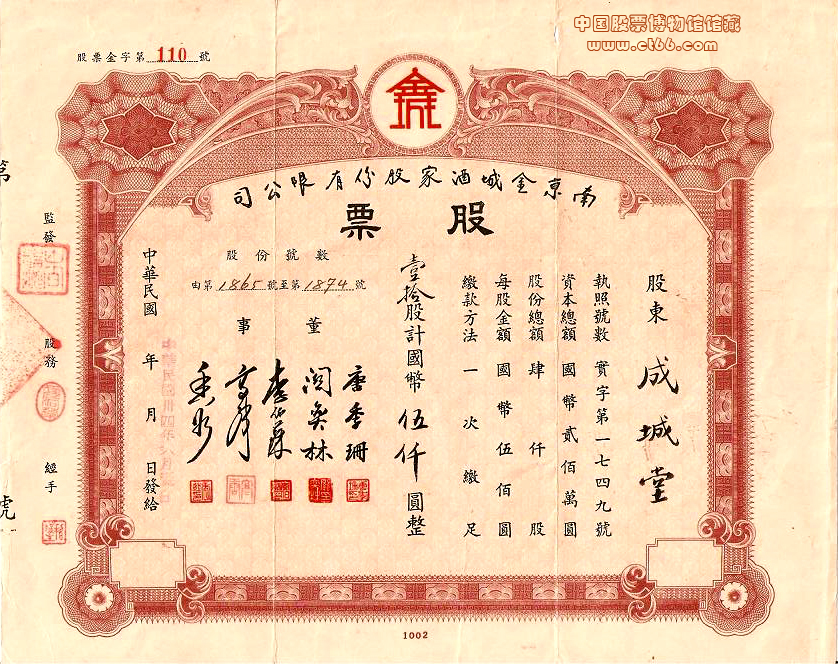 中国股票博物馆馆藏
www.ct66.com
股票金字第 110 號
南京金城酒家股份有限公司
股票
股東 成城堂
執照號數 實字第一七四九號
資本總額 國幣貳佰萬圓
股份總額 肆仟股
每股金額 國幣伍佰圓
繳款方法 一次繳足
壹拾股計國幣 伍仟 圓整
股份號數
由第1865號至第1874號
董事
唐季珊
林
中華民國 年 月 日發給
監發
股務
經手
第
號
1002